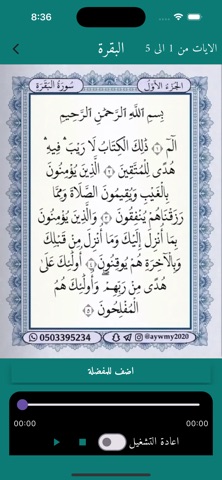 8:36
الايات من 1 الى 5
البقرة
الجزء الأول
سورة البقرة
بِسْمِ اللَّهِ الرَّحْمَٰنِ الرَّحِيمِ
الٓمٓ ۝١ ذَٰلِكَ الْكِتَابُ لَا رَيْبَ ۛ فِيهِ ۛ
هُدًى لِّلْمُتَّقِينَ ۝٢ الَّذِينَ يُؤْمِنُونَ
بِالْغَيْبِ وَيُقِيمُونَ الصَّلَاةَ وَمِمَّا
رَزَقْنَاهُمْ يُنفِقُونَ ۝٣ وَالَّذِينَ يُؤْمِنُونَ
بِمَا أُنزِلَ إِلَيْكَ وَمَا أُنزِلَ مِن قَبْلِكَ
وَبِالْآخِرَةِ هُمْ يُوقِنُونَ ۝٤ أُولَٰئِكَ عَلَىٰ
هُدًى مِّن رَّبِّهِمْ ۖ وَأُولَٰئِكَ هُمُ
الْمُفْلِحُونَ ۝٥
0503395234
@aywmy2020
اضف للمفضلة
00:00
00:00
اعادة التشغيل